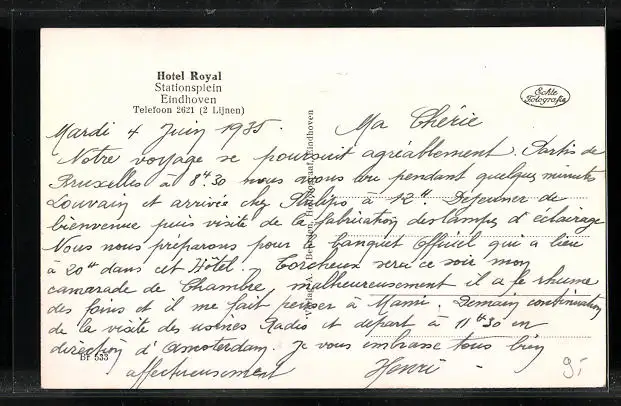 Hotel Royal
Stationsplein
Eindhoven
Telefoon 2621 (2 Lijnen)
Echte
Fotografie
Mardi 4 Juin 1935. Ma Chérie
Notre voyage se poursuit agréablement. Partis de
Bruxelles à 8h30 nous avons vu pendant quelques minutes
Louvain et arrivée chez Philips à 12h. Dejeuner de
bienvenue puis visite de la fabrication des lampes d'éclairage
Nous nous préparons pour le banquet Officiel qui a lieu
à 20h dans cet Hôtel. Torcheux sera ce soir mon
camarade de Chambre, malheureusement il a le rhume
des foins et il me fait penser à Mami. Demain continuation
de la visite des usines Radio et départ à 11h30 en
direction d'Amsterdam. Je vous embrasse tous bien
affectueusement Henri -
BF 533
9.-
Eindhoven